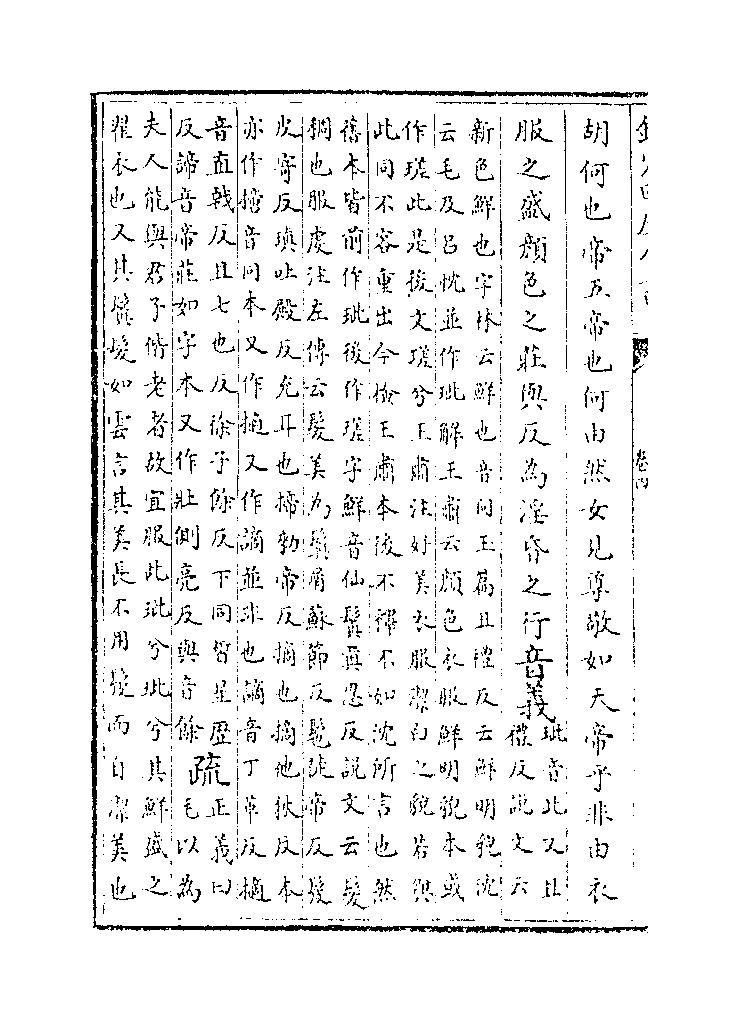 卷四
胡何也帝五帝也何由然女見尊敬如天帝乎非由衣
服之盛顏色之莊與反為淫昏之行音義玼音此又且
禮反說文云
新色鮮也字林云鮮也音同玉篇且禮反云鮮明貌沈
云毛及呂忱並作玼解王肅云顏色衣服鮮明貌本或
作瑳此是後文瑳兮王肅注好美衣服潔白之貌若與
此同不容重出今檢王肅本後不釋不如沈所言也然
舊本皆前作玼後作瑳字鮮音仙鬒真忍反說文云髮
稠也服虔注左傳云髮美為鬒屑蘇節反髢徒帝反髲
皮寄反瑱吐殿反充耳也揥勑帝反摘也摘他狄反本
亦作擿音同本又作擿又作謫並非也謫音丁革反擿
音直戟反且七也反徐子餘反下同晳星歷
反諦音帝莊如字本又作壯側亮反與音餘疏正義曰
毛以為
夫人能與君子偕老者故宜服此玼兮玼兮其鮮盛之
翟衣也又其鬒髮如雲言其美長不用髲而自潔美也